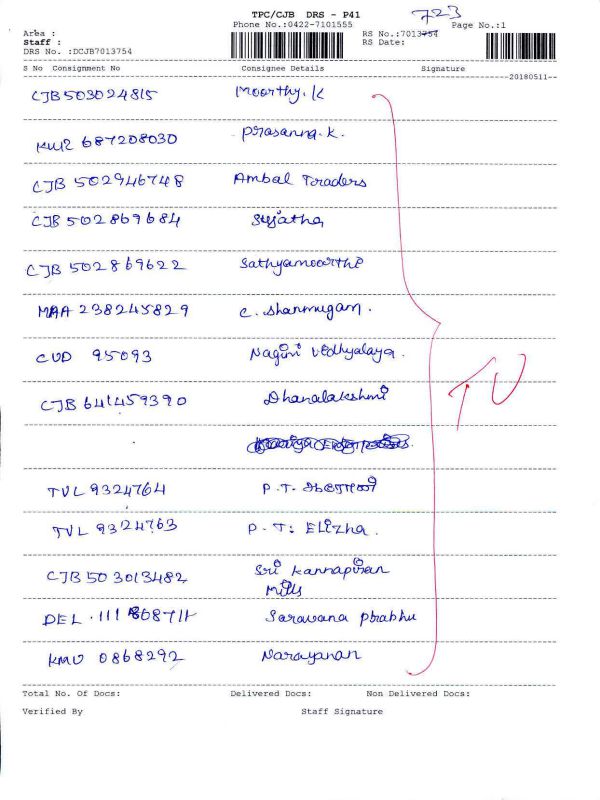 TPC/CJB DRS - P41
723
Phone No.:0422-7101555
Page No.:1
Area :
RS No.:7013754
Staff :
RS Date:
DRS No. :DCJB7013754
S No Consignment No Consignee Details Signature
20180511
CJB 503024815 Moorthy. K
KUR 687208030 Prasanna. K.
CJB 502946748 Ambal Traders
CJB 502869684 Sujatha
CJB 502869622 Sathyamoorthi
MAA 238245829 C. Shanmugam.
CUD 95093 Nagini Vidhyalaya.
CJB 641459390 Dhanalakshmi
TU
TVL 9324764 P. T.
TVL 9324763 P. T. Elizha.
CJB 503013482 Sri Kannapiran
Mills
DEL 111868711 Saravana Prabhu
KMU 0868292 Narayanan
Total No. Of Docs: Delivered Docs: Non Delivered Docs:
Verified By Staff Signature